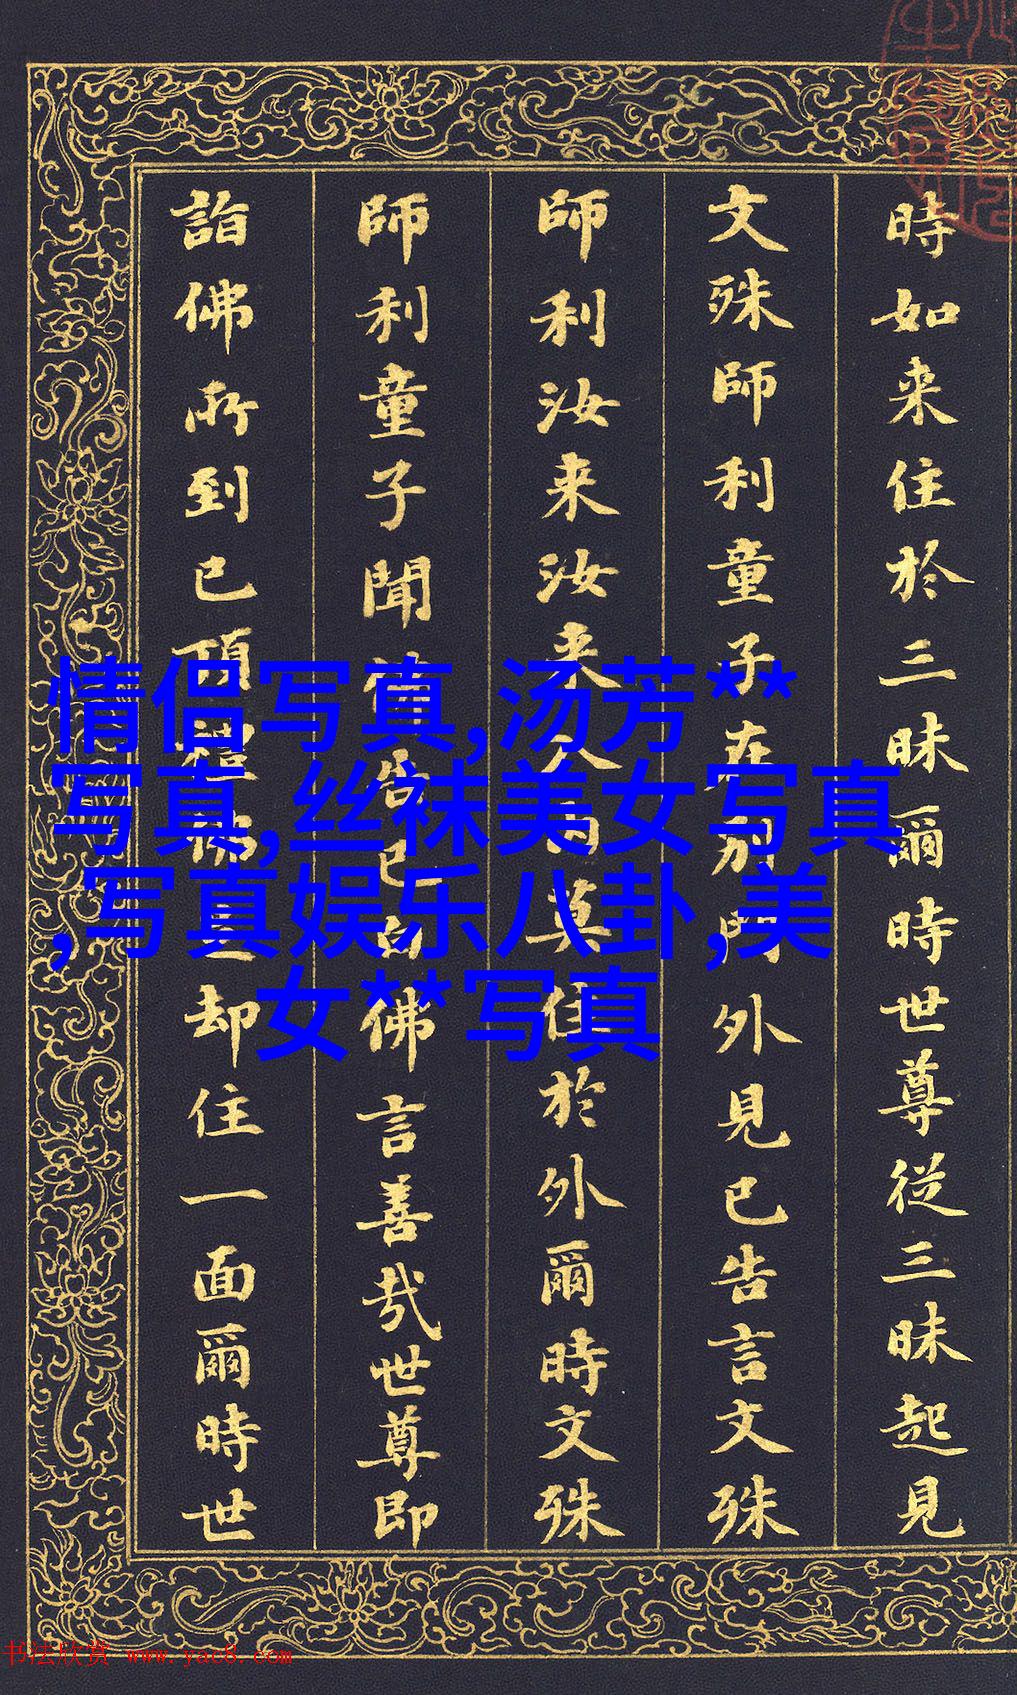 時如来住於三昧爾時世尊從三昧起見
文殊師利童子在別門外見已告言文殊
師利汝来汝来入莫住於外爾時文殊
師利童子聞告已白佛言善哉世尊即
詣佛所到已頂禮佛却住一面爾時世
情侣写真,汤芳**
写真,丝袜美女写真
,写真娱乐八卦,美
女**写真
书法欣赏 www.yac8.com